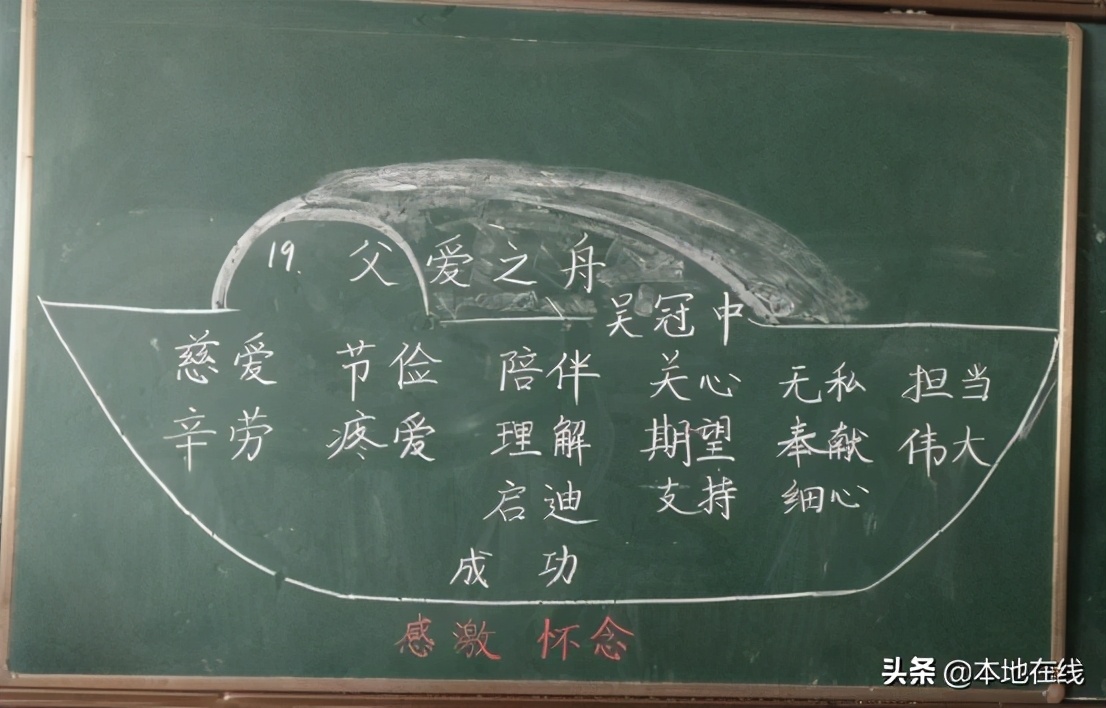 19. 父爱之舟
吴冠中
慈爱 节俭 陪伴 关心 无私 担当
辛劳 疼爱 理解 期望 奉献 伟大
启迪 支持 细心
成功
感激 怀念
头条 @本地在线